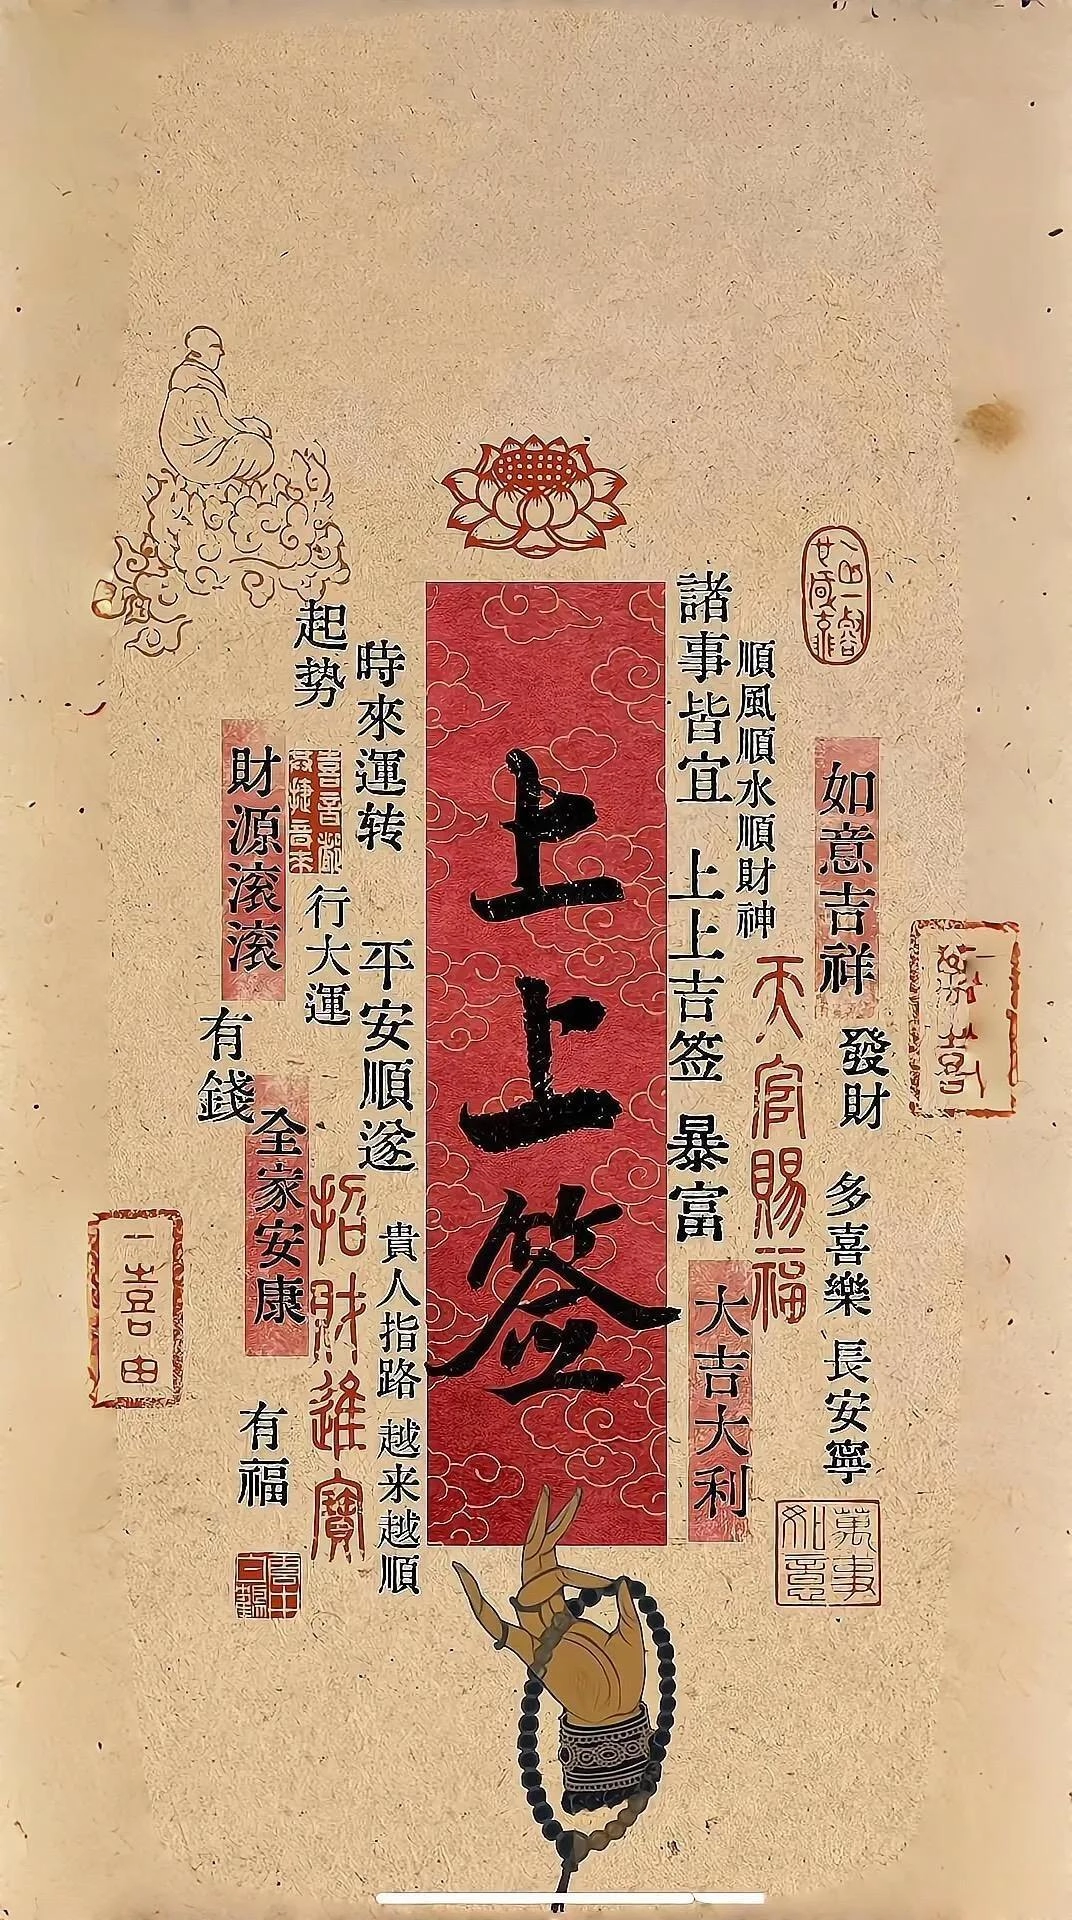 如意吉祥
發財
多喜樂 長安寧
萬事如意
順風順水順財神
天官賜福
諸事皆宜 上上吉签 暴富
大吉大利
上上签
時來運转 平安順遂
貴人指路 越来越順
起势
行大運
招財進寶
財源滚滚
有錢
全家安康
有福
一喜由